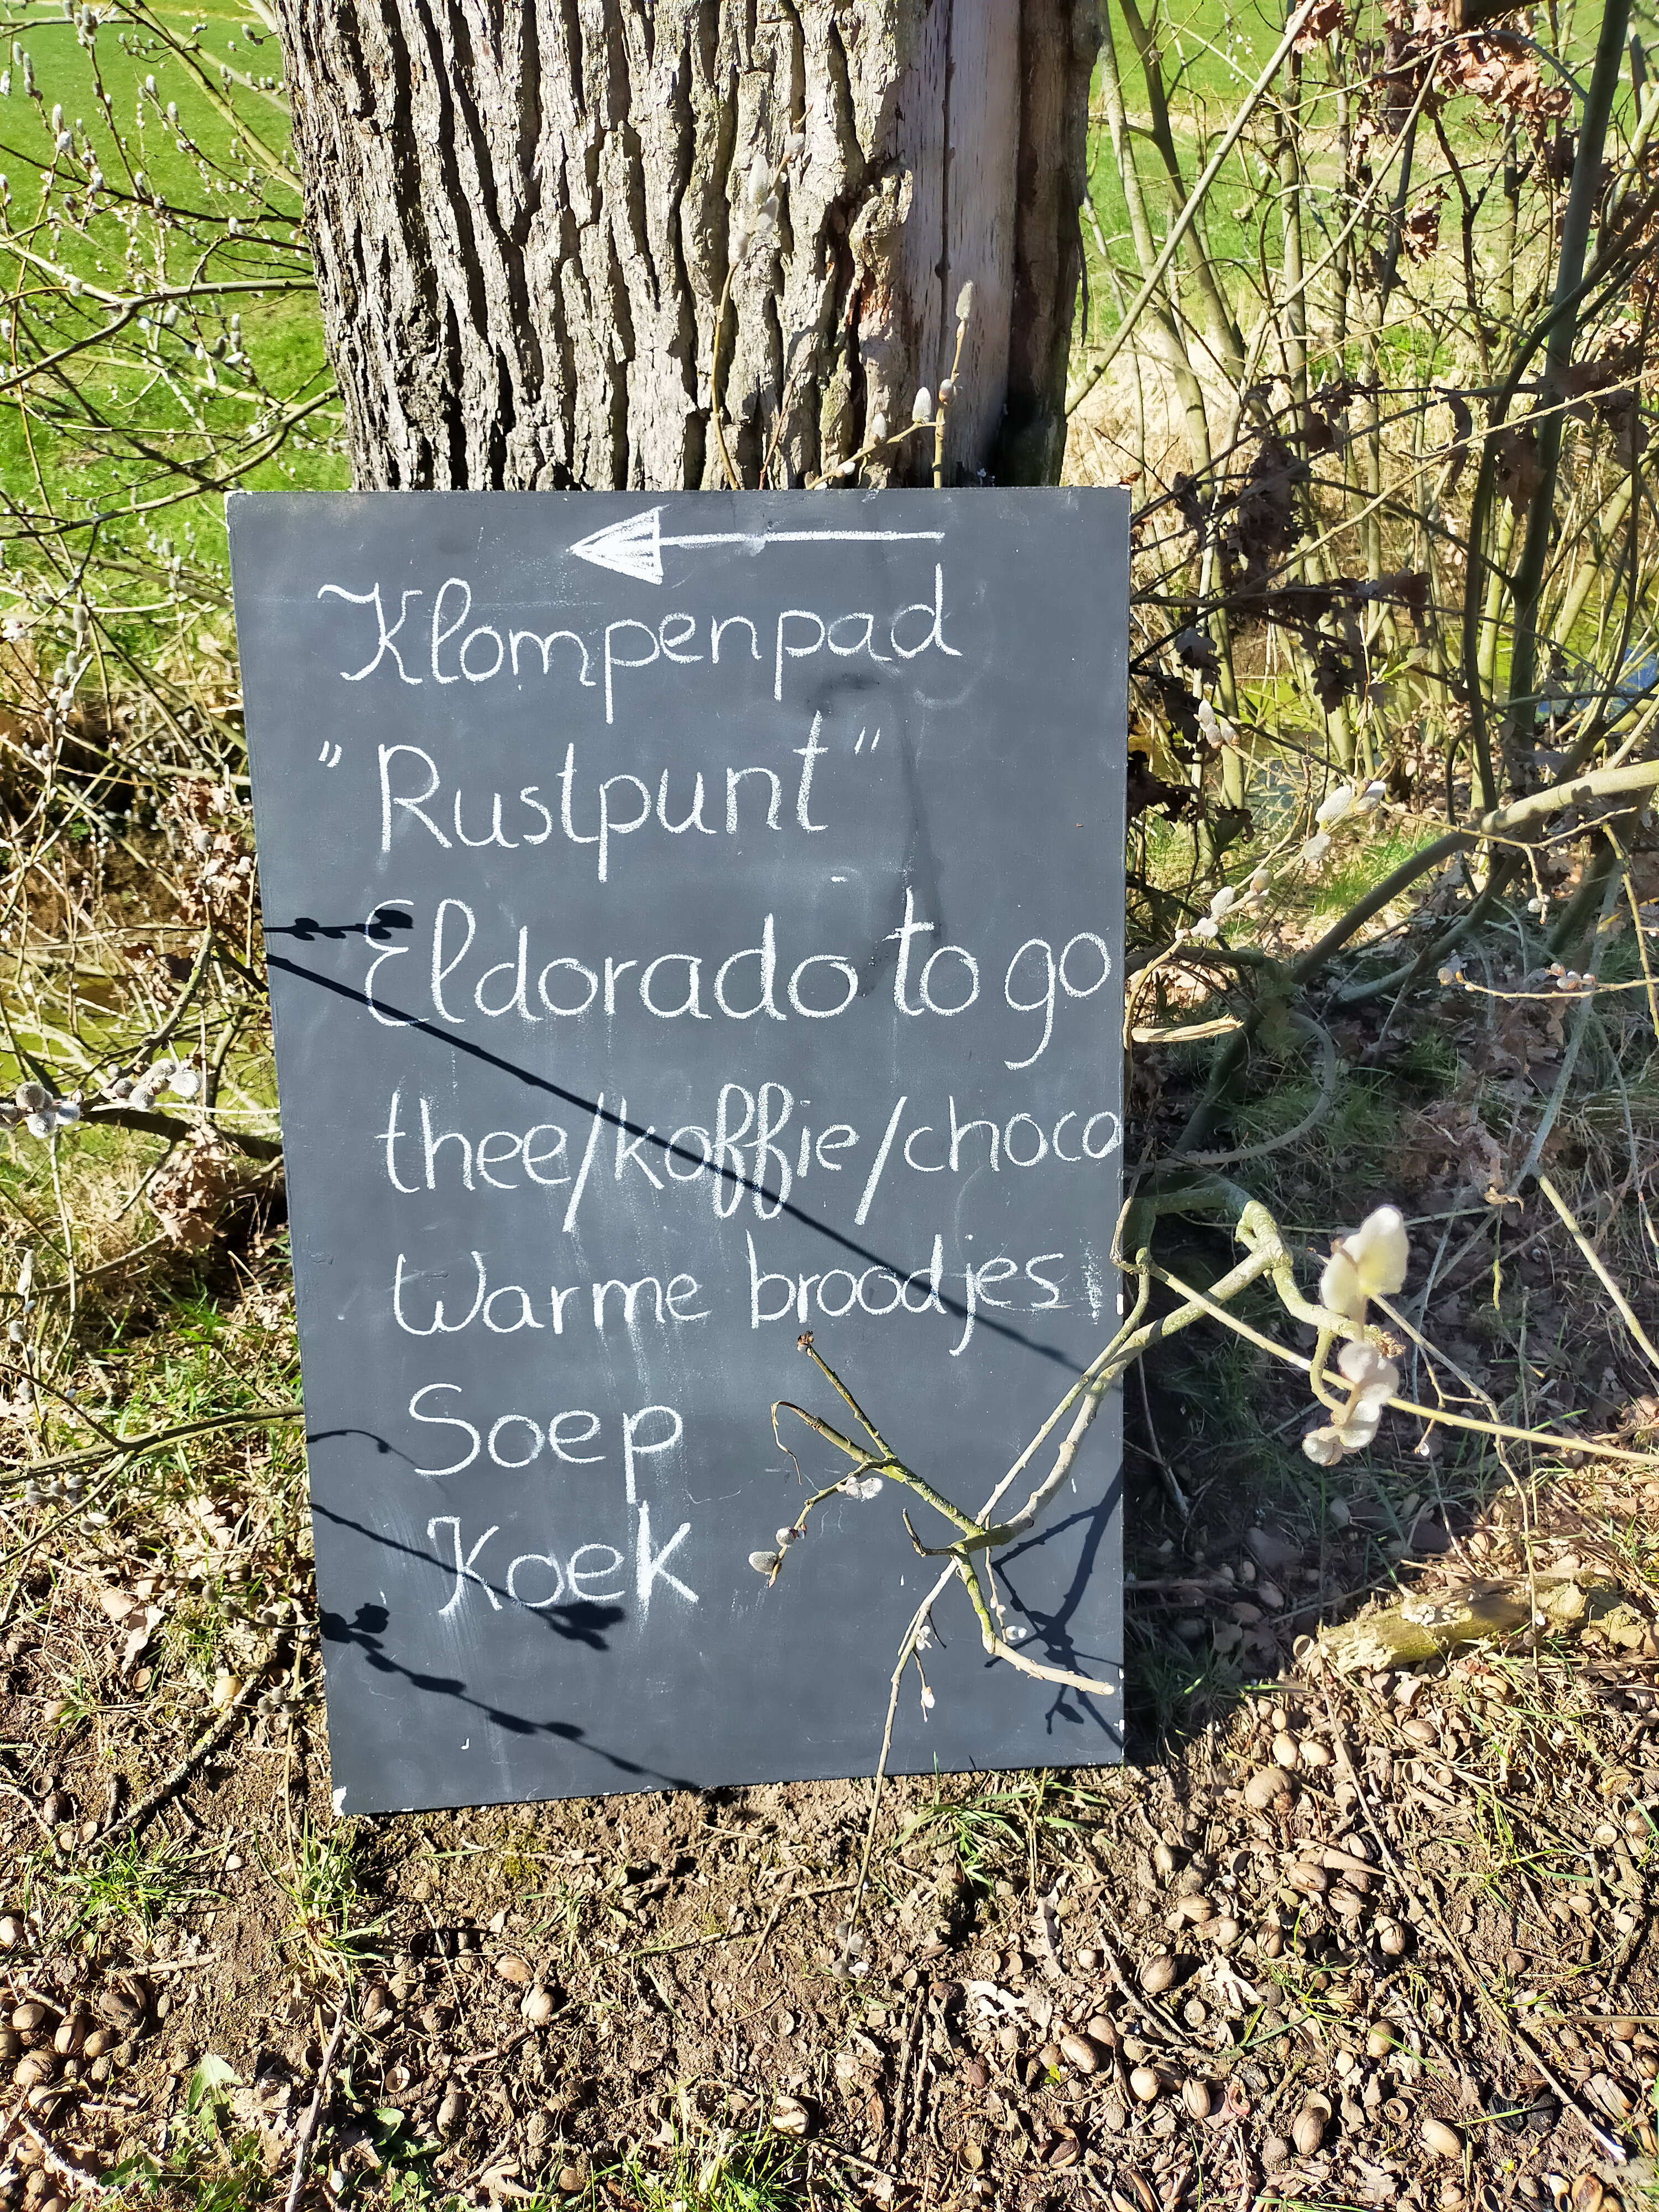 Klompenpad
"Rustpunt"
Eldorado to go
thee/koffie/choco
Warme broodjes
Soep
Koek